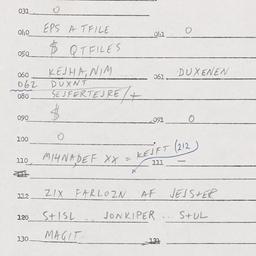 031 0
040 EPS A TFILE 041 0
050 $ QTFILES
060 KEJHA, NIM 061 DUXENEN
062 DUXNT
080 SESFERTEJRE/+
090 $ 091 0
100 0
110 MI4NADEF XX = KEJFT (212)
111 —
112 ZIX FARLOZN AF JEJSTER
120 S+ISL .. JONKIPER .. S+UL
130 MAGIT 131